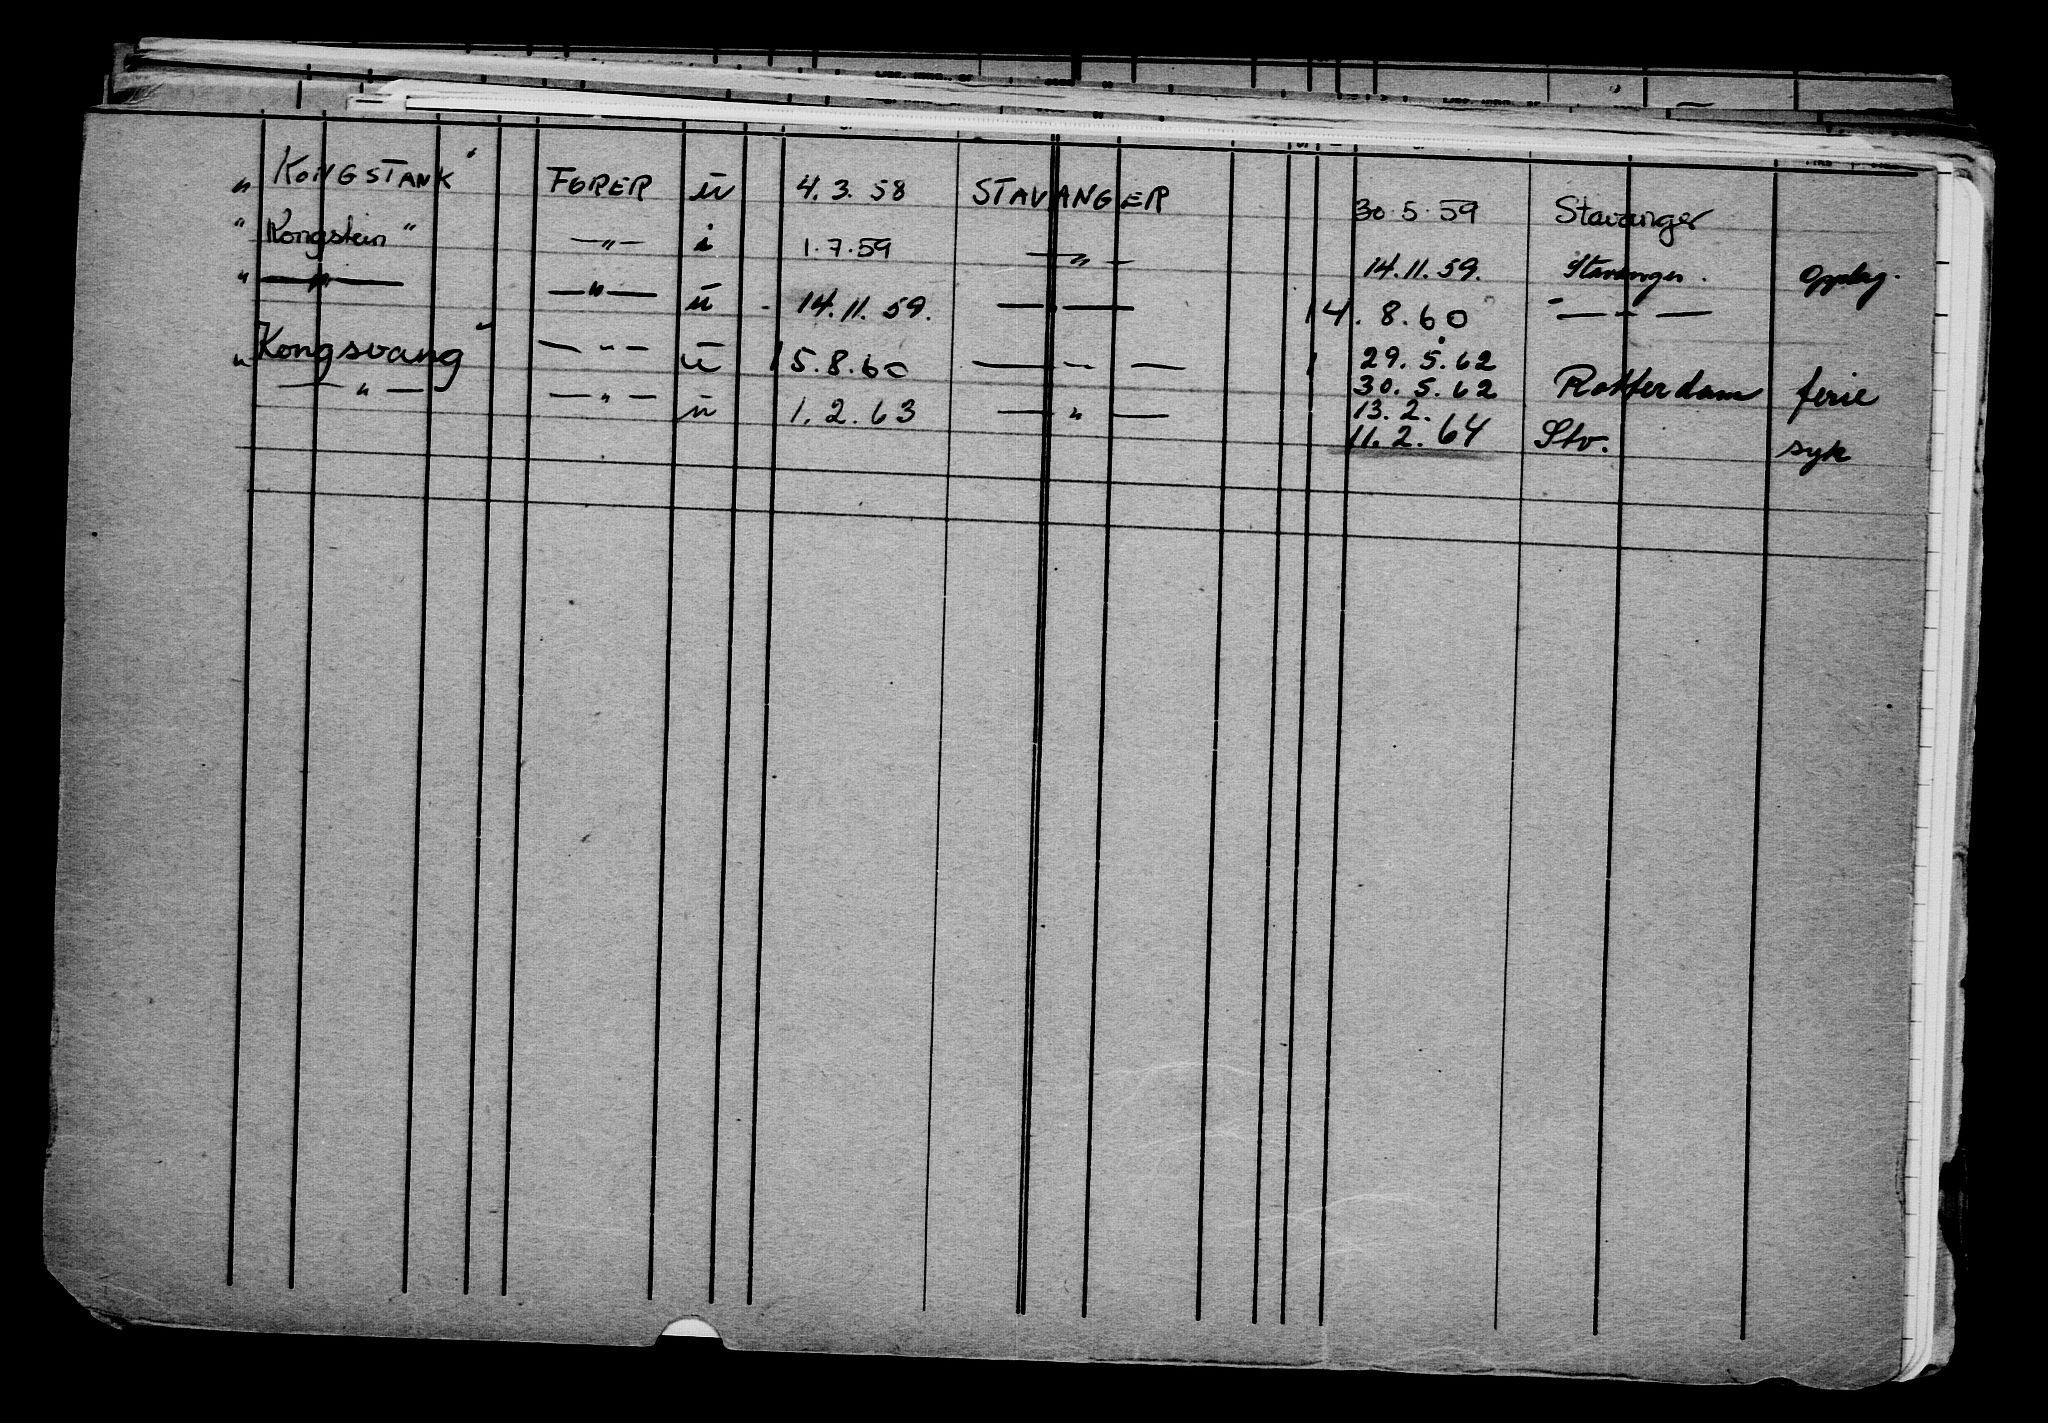 "KONGSTANK" FØRER ū 4.3.58 STAVANGER 30.5.59 Stavanger
"Kongstein" —„— i 1.7.59 —„— 14.11.59. Stavanger. Opplag.
" —„— —„— ū 14.11.59. —„— 14.8.60 —„—
"Kongsvang" —„— ū 15.8.60 —„— 29.5.62
30.5.62 Rotterdam ferie
—„— —„— ū 1.2.63 —„— 13.2.
11.2.64 Stv. syk